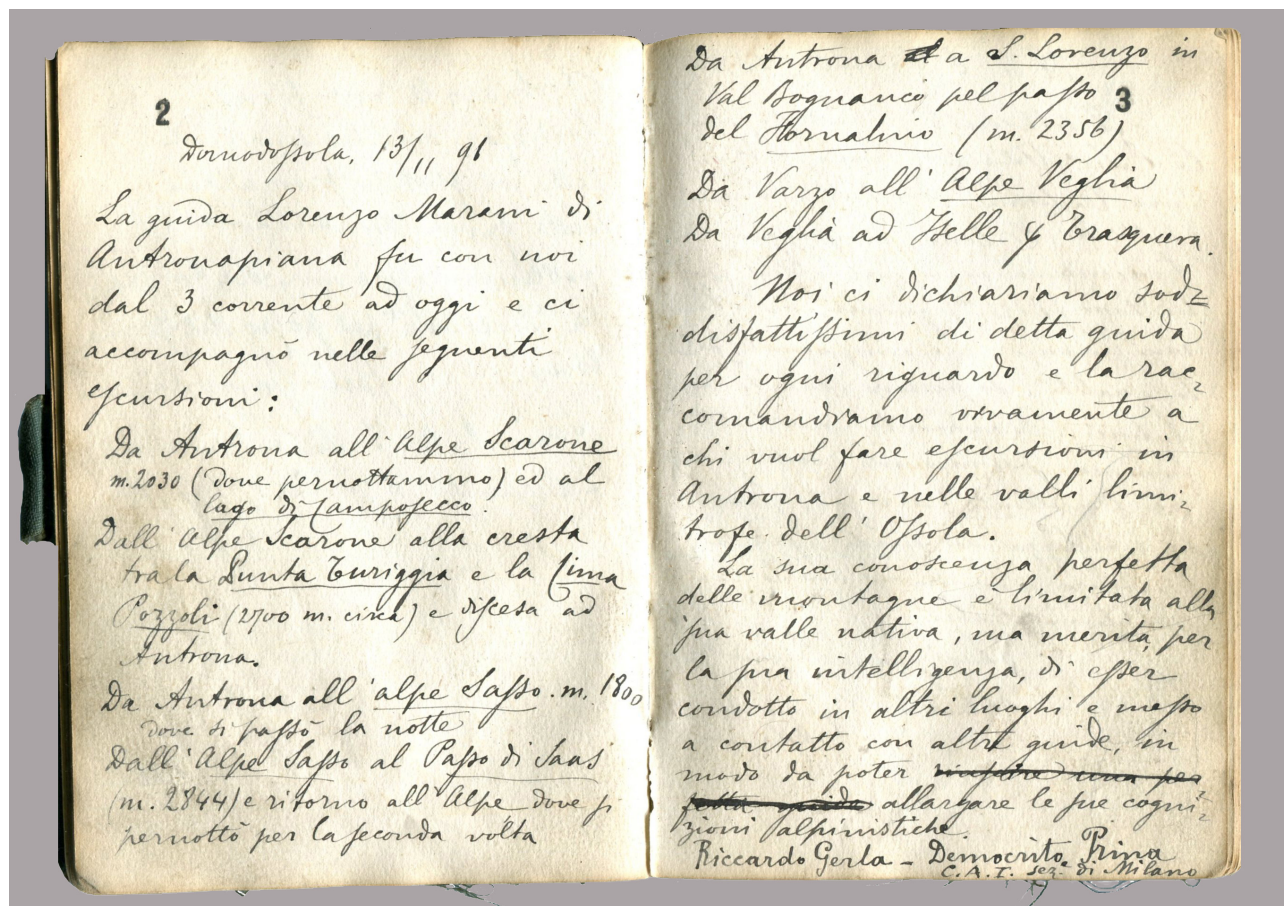 2
Domodossola, 13/11 91
La guida Lorenzo Marani di
Antronapiana fu con noi
dal 3 corrente ad oggi e ci
accompagnò nelle seguenti
escursioni:
Da Antrona all'Alpe Scarone
m. 2030 (dove pernottammo) ed al
lago di Camposecco.
Dall'Alpe Scarone alla cresta
tra la Punta Turiggia e la Cima
Pozzoli (2700 m. circa) e discesa ad
Antrona.
Da Antrona all'alpe Sasso. m. 1800
dove si passò la notte
Dall'Alpe Sasso al Passo di Saas
(m. 2844) e ritorno all'Alpe dove si
pernottò per la seconda volta
3
Da Antrona a S. Lorenzo in
Val Bognanco pel passo
del Fornalino (m. 2356)
Da Varzo all'Alpe Veglia
Da Veglia ad Iselle & Trasquera.
Noi ci dichiariamo sod=
disfattissimi di detta guida
per ogni riguardo e la rac=
comandiamo vivamente a
chi vuol fare escursioni in
Antrona e nelle valli limi=
trofe dell'Ossola.
La sua conoscenza perfetta
delle montagne è limitata alla
sua valle nativa, ma merita, per
la sua intelligenza, di esser
condotto in altri luoghi e messo
a contatto con altre guide, in
modo da poter riuscire una per
fetta guida allargare le sue cogni=
zioni alpinistiche.
Riccardo Gerla - Democrito Prina
C.A.I. sez.e di Milano